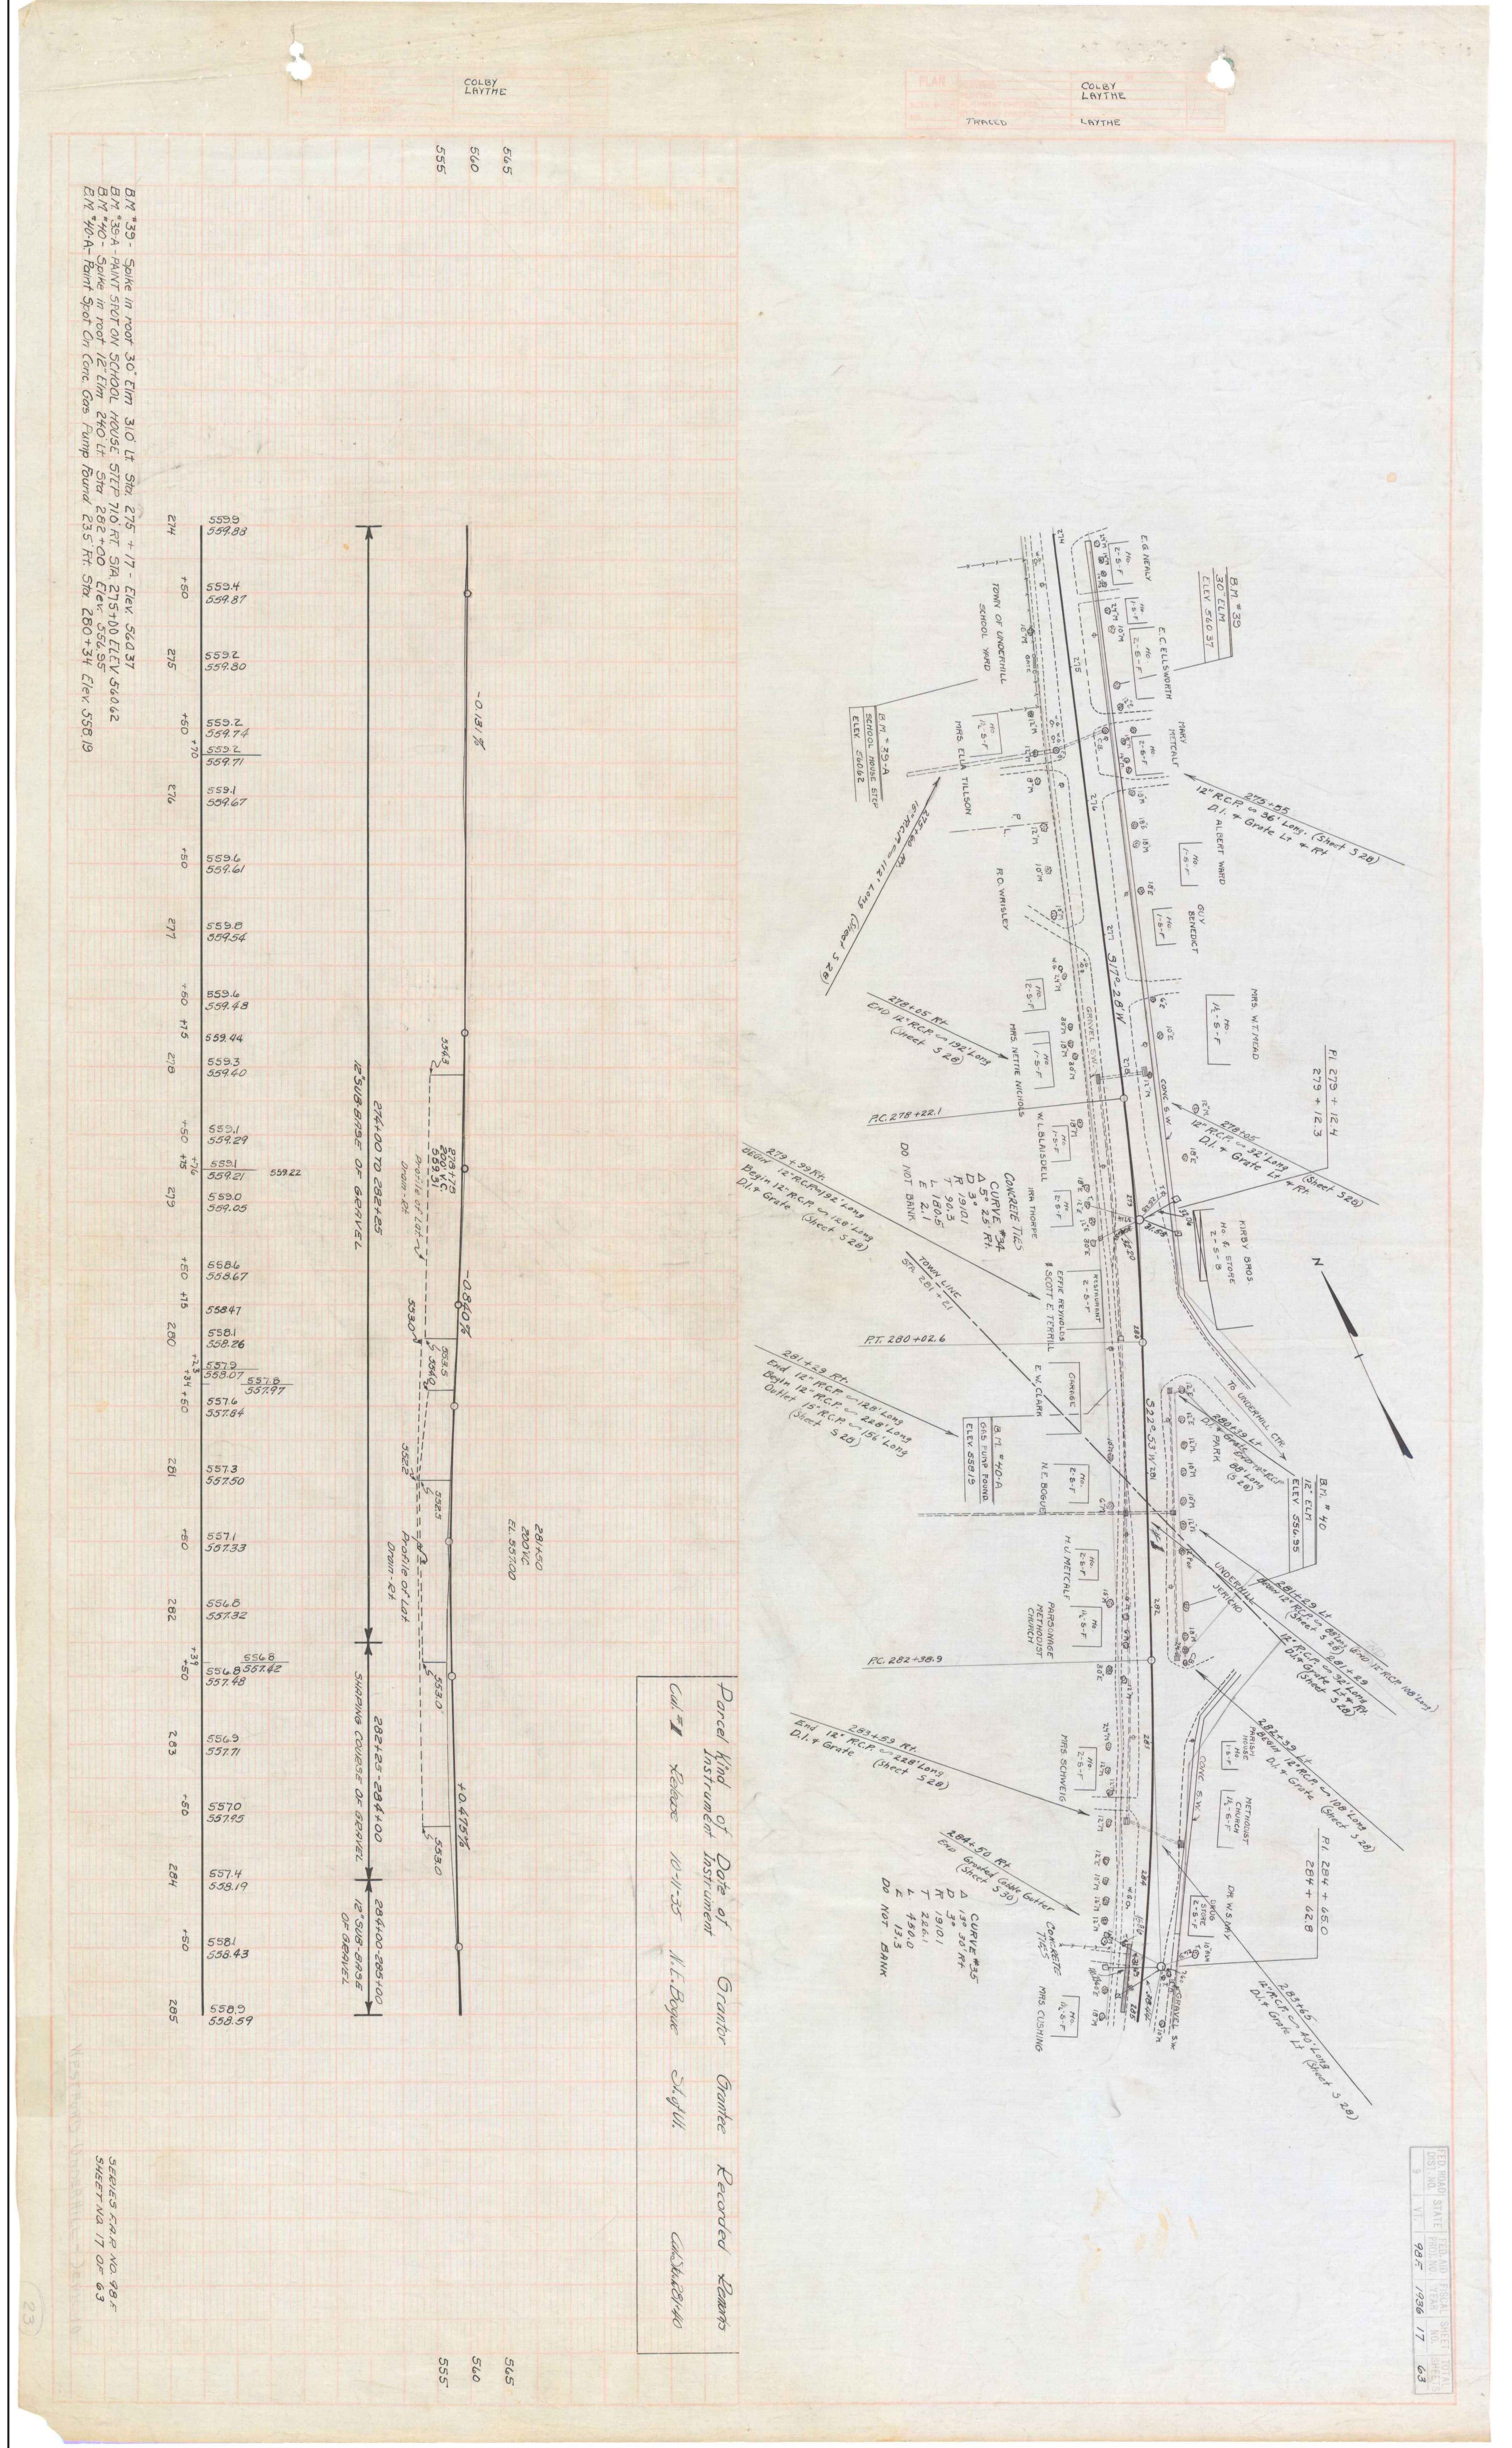 COLBY
LAYTHE
PLAN
COLBY
LAYTHE
TRACED
LAYTHE
FED. ROAD DIST. NO.
STATE
FISCAL YEAR
SHEET NO.
TOTAL SHEETS
9
VT.
98F
1936
17
63
B.M. #39
30" ELM
ELEV. 560.37
E.G. NEALY
Ho.
2-S-F
E.C. ELLSWORTH
Ho.
2-S-F
MARY
METCALF
Ho.
2-S-F
275+55
12" R.C.P. 36' Long. (Sheet S 28)
D.I. & Grate Lt & Rt
ALBERT WARD
Ho.
1-S-F
GUY
BENEDICT
Ho.
1-S-F
MRS. W.T. MEAD
Ho.
1½-S-F
P.I. 279 + 12.4
279 + 12.3
278+05
12" R.C.P. 32' Long (Sheet S 28)
D.I. & Grate Lt & Rt
KIRBY BROS.
Ho. & STORE
2-S-B
N
TO UNDERHILL CTR.
280+39 Lt
D.I. & Grate
88' Long
(S 28)
PARK
B.M. #40
12" ELM
ELEV. 556.95
UNDERHILL
JERICHO
281+29 Lt
(Sheet S 28)
281+29
12" R.C.P. 32' Long
D.I. & Grate Lt & Rt
(Sheet S 28)
282+39 Lt
BEGIN 12" R.C.P. 108' Long
D.I. & Grate (Sheet S 28)
PARISH
HOUSE
Ho.
1-S-F
CONC. S.W.
METHODIST
CHURCH
1½-S-F
P.I. 284 + 65.0
284 + 62.8
DR. W.S. MAY
DRUG
STORE
2-S-F
GRAVEL S.W.
283+65
12" R.C.P. 40' Long
D.I. & Grate Lt (Sheet S 28)
274
275
276
277
S17°-28'W
278
279
280
S22°-53'W
281
282
283
284
285
GRAVEL S.W.
CONC. S.W.
TOWN OF UNDERHILL
SCHOOL YARD
B.M. #39-A
SCHOOL HOUSE STEP
ELEV. 560.62
Ho.
1½-S-F
MRS. ELLA TILLSON
275+60 Rt.
15" R.C.P. 112' Long (Sheet S 28)
P
L
R.O. WRISLEY
Ho.
2-S-F
278+05 Rt
END 12" R.C.P. 192' Long
(Sheet S 28)
MRS. NETTIE NICHOLS
Ho.
1-S-F
P.C. 278+22.1
W.L. BLAISDELL
Ho.
1-S-F
IRA THORPE
Ho.
2-S-F
CONCRETE TIES
CURVE #34
Δ 5° 25' Rt.
D 3°
R 1910.1
T 90.3
L 180.5
E 2.1
DO NOT BANK
279+99 Rt.
12" R.C.P. 192' Long
Begin 12" R.C.P. 128' Long
D.I. & Grate (Sheet S 28)
TOWN LINE
STA. 281 + 21
RESTAURANT
2-S-F
EFFIE REYNOLDS
& SCOTT E. TERRILL
P.T. 280+02.6
GARAGE
E.W. CLARK
281+29 Rt.
End 12" R.C.P. 128' Long
Begin 12" R.C.P. 228' Long
Outlet 15" R.C.P. 156' Long
(Sheet S 28)
B.M. #40-A
GAS PUMP FOUND.
ELEV. 558.19
N.E. BOGUE
Ho.
2-S-F
H.U. METCALF
Ho.
2-S-F
PARSONAGE
METHODIST
CHURCH
Ho.
1½-S-F
P.C. 282+38.9
MRS. SCHWEIG
Ho.
2-S-F
283+59 Rt.
End 12" R.C.P. 228' Long
D.I. & Grate (Sheet S 28)
284+50 Rt
END Grouted Cobble Gutter
(Sheet S 30)
CURVE #35
Δ 13° 30' Rt
D 3°
R 1910.1
T 226.1
L 450.0
E 13.3
DO NOT BANK
CONCRETE
TIES
MRS. CUSHING
Ho.
1½-S-F
Parcel
Kind of Instrument
Date of Instrument
Grantor
Grantee
Recorded
Remarks
Cul. #1
Release
10-11-35
N.E. Bogue
St. of Vt.
565
560
555
-0.131%
-0.840%
+0.475%
281+50
200' V.C.
EL. 557.00
278+75
200' V.C.
559.31
554.3
Profile of Lateral
Drain-Rt
553.0
553.5
554.0
552.2
552.5
Profile of Lat
Drain-Rt
553.0
553.0
274+00 TO 282+25
12" SUB-BASE OF GRAVEL
282+25-284+00
SHAPING COURSE OF GRAVEL
284+00-285+00
12" SUB-BASE
OF GRAVEL
565
560
555
559.9
559.88
559.4
559.87
559.2
559.80
559.2
559.74
559.2
559.71
559.1
559.67
559.6
559.61
559.8
559.54
559.6
559.48
559.44
559.3
559.40
559.1
559.29
559.1
559.21
559.22
559.0
559.05
558.6
558.67
558.47
558.1
558.26
557.9
558.07
557.8
557.97
557.6
557.84
557.3
557.50
557.1
557.33
556.8
557.32
556.8
557.42
556.8
557.48
556.9
557.71
557.0
557.95
557.4
558.19
558.1
558.43
558.9
558.59
274
+50
275
+50
+70
276
+50
277
+50
+75
278
+50
+75
+76
279
+50
+75
280
+23
+34
+50
281
+50
282
+39
+50
283
+50
284
+50
285
B.M. #39 - Spike in root 30" Elm 31.0 Lt Sta. 275 + 17 - Elev. 560.37
B.M. #39A - PAINT SPOT ON SCHOOL HOUSE STEP 71.0 RT. STA. 275+00 ELEV. 560.62
B.M. #40 - Spike in root 12" Elm 24.0 Lt Sta 282+00 Elev. 556.95
B.M. #40-A - Paint Spot On Conc. Gas Pump Found. 23.5 Rt. Sta 280+34 Elev. 558.19
SERIES F.A.P. NO. 98-F
SHEET NO. 17 OF 63
23